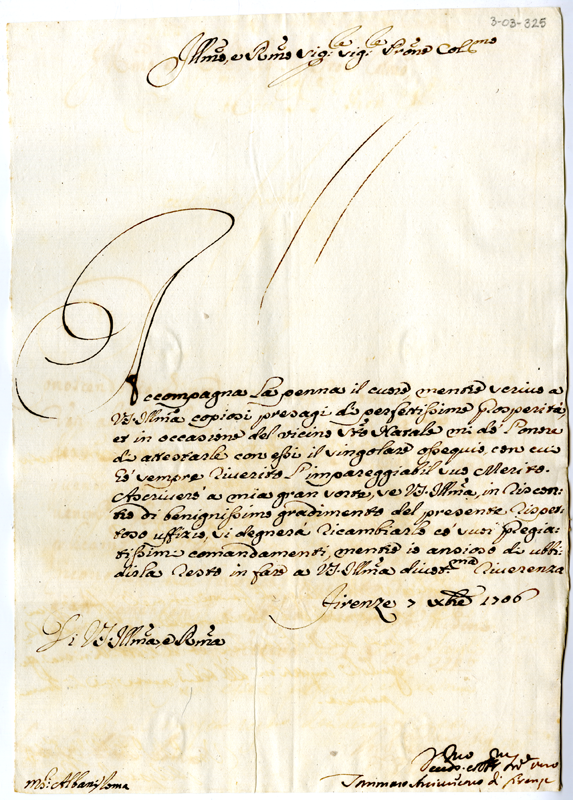 3-03-325
Illmo, e Rmo Sigre Sigre Prone Colmo
Accompagna La penna il cuore mentre scrivo a
VS. Illma copiosi presagi di perfettissime prosperità
et in occasione del vicino Sto Natale mi dò l'onore
di attestarle con essi il singolare ossequio, con cui
hò sempre riverito l'impareggiabil suo Merito.
Ascriverò a mia gran sorte, se VS. Illma, in riscon-
tro di benignissimo gradimento del presente rispet-
toso uffizio, si degnerà ricambiarlo co' suoi pregia-
tissimi comandamenti, mentre io ansioso di ubbi-
dirla resto in fare a VS. Illma divotma riverenza
Firenze 7 Xbre 1706
Di VS. Illma, e Rma
Tommaso di Firenze
Mr. Albani Roma